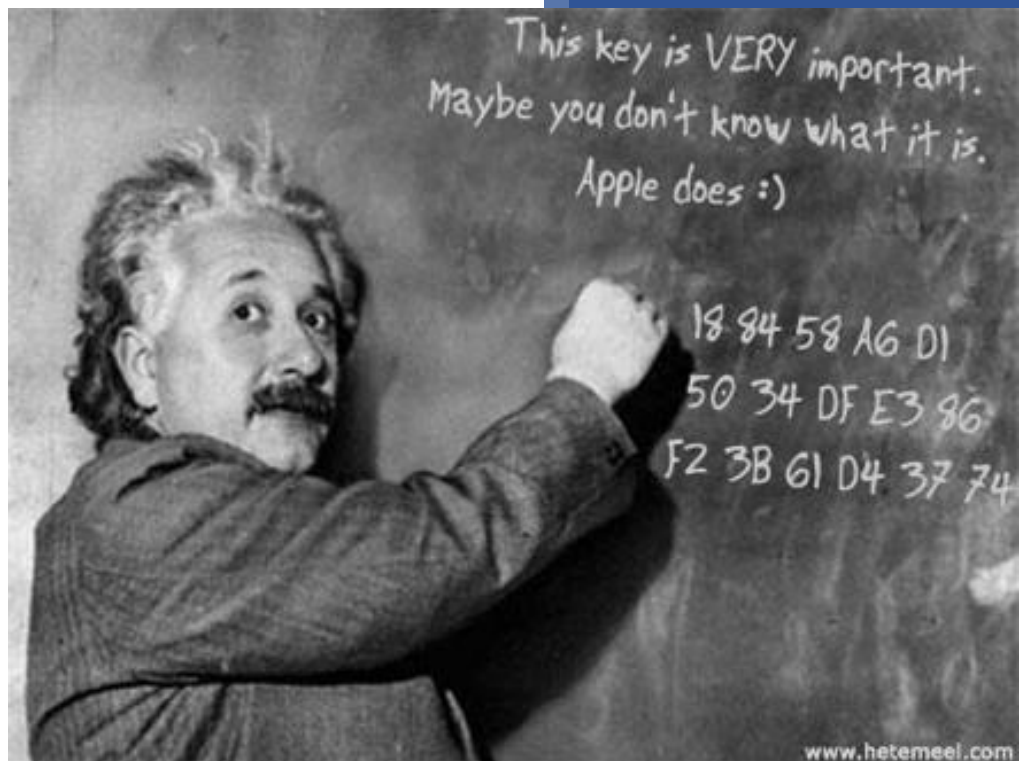 This key is VERY important.
Maybe you don't know what it is.
Apple does :)
18 84 58 A6 D1
50 34 DF E3 86
F2 3B 61 D4 37 74
www.hetemeel.com